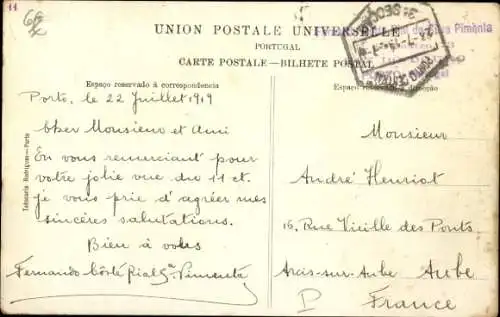 11
UNION POSTALE UNIVERSELLE
PORTUGAL
CARTE POSTALE—BILHETE POSTAL
Espaço reservado á correspondencia
Espaço reservado á direcção
Pimenta
3ª SECÇÃO
Porto, le 22 Juillet 1919
Cher Monsieur et Ami
En vous remerciant pour
votre jolie vue du 11 ct.
je vous prie d'agréer mes
sincères salutations.
Bien à vous
Fernando Côrte Real Pimenta
Tabacaria Rodrigues—Porto
Monsieur
André Henriot
16, Rue Vieille des Ponts
Arcis-sur-Aube Aube
France